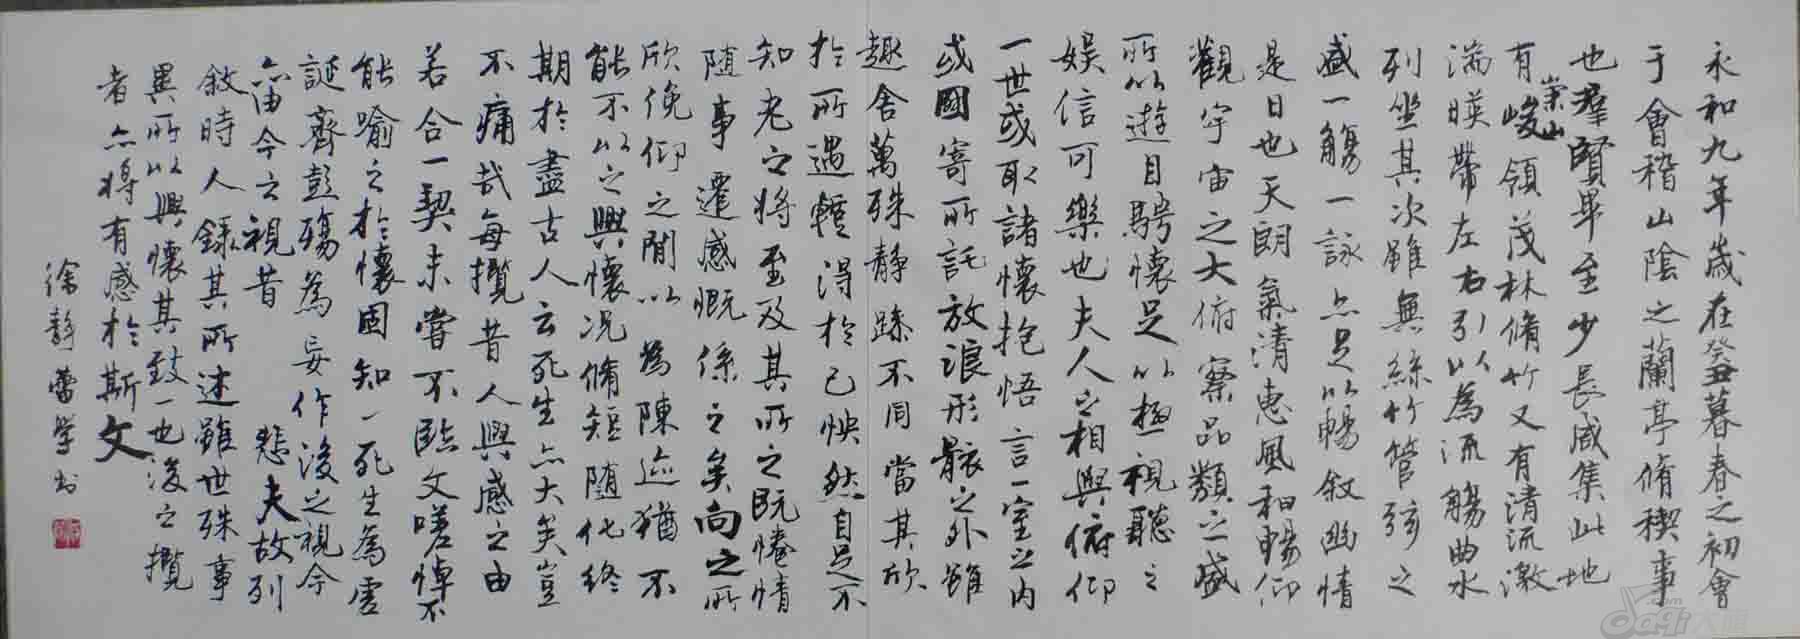 永和九年歲在癸丑暮春之初會
于會稽山陰之蘭亭脩稧事
也羣賢畢至少長咸集此地
有崇山峻領茂林脩竹又有清流激
湍暎帶左右引以為流觴曲水
列坐其次雖無絲竹管弦之
盛一觴一詠亦足以暢敘幽情
是日也天朗氣清惠風和暢仰
觀宇宙之大俯察品類之盛
所以遊目騁懷足以極視聽之
娛信可樂也夫人之相與俯仰
一世或取諸懷抱悟言一室之內
或因寄所託放浪形骸之外雖
趣舍萬殊靜躁不同當其欣
於所遇輕得於己怏然自足不
知老之將至及其所之既惓情
隨事遷感慨係之矣向之所
欣俛仰之間以為陳迹猶不
能不以之興懷況脩短隨化終
期於盡古人云死生亦大矣豈
不痛哉每攬昔人興感之由
若合一契未嘗不臨文嗟悼不
能喻之於懷固知一死生為虛
誕齊彭殤為妄作後之視今
亦由今之視昔 悲夫故列
敘時人錄其所述雖世殊事
異所以興懷其致一也後之攬
者亦將有感於斯文
徐靜蕾學書